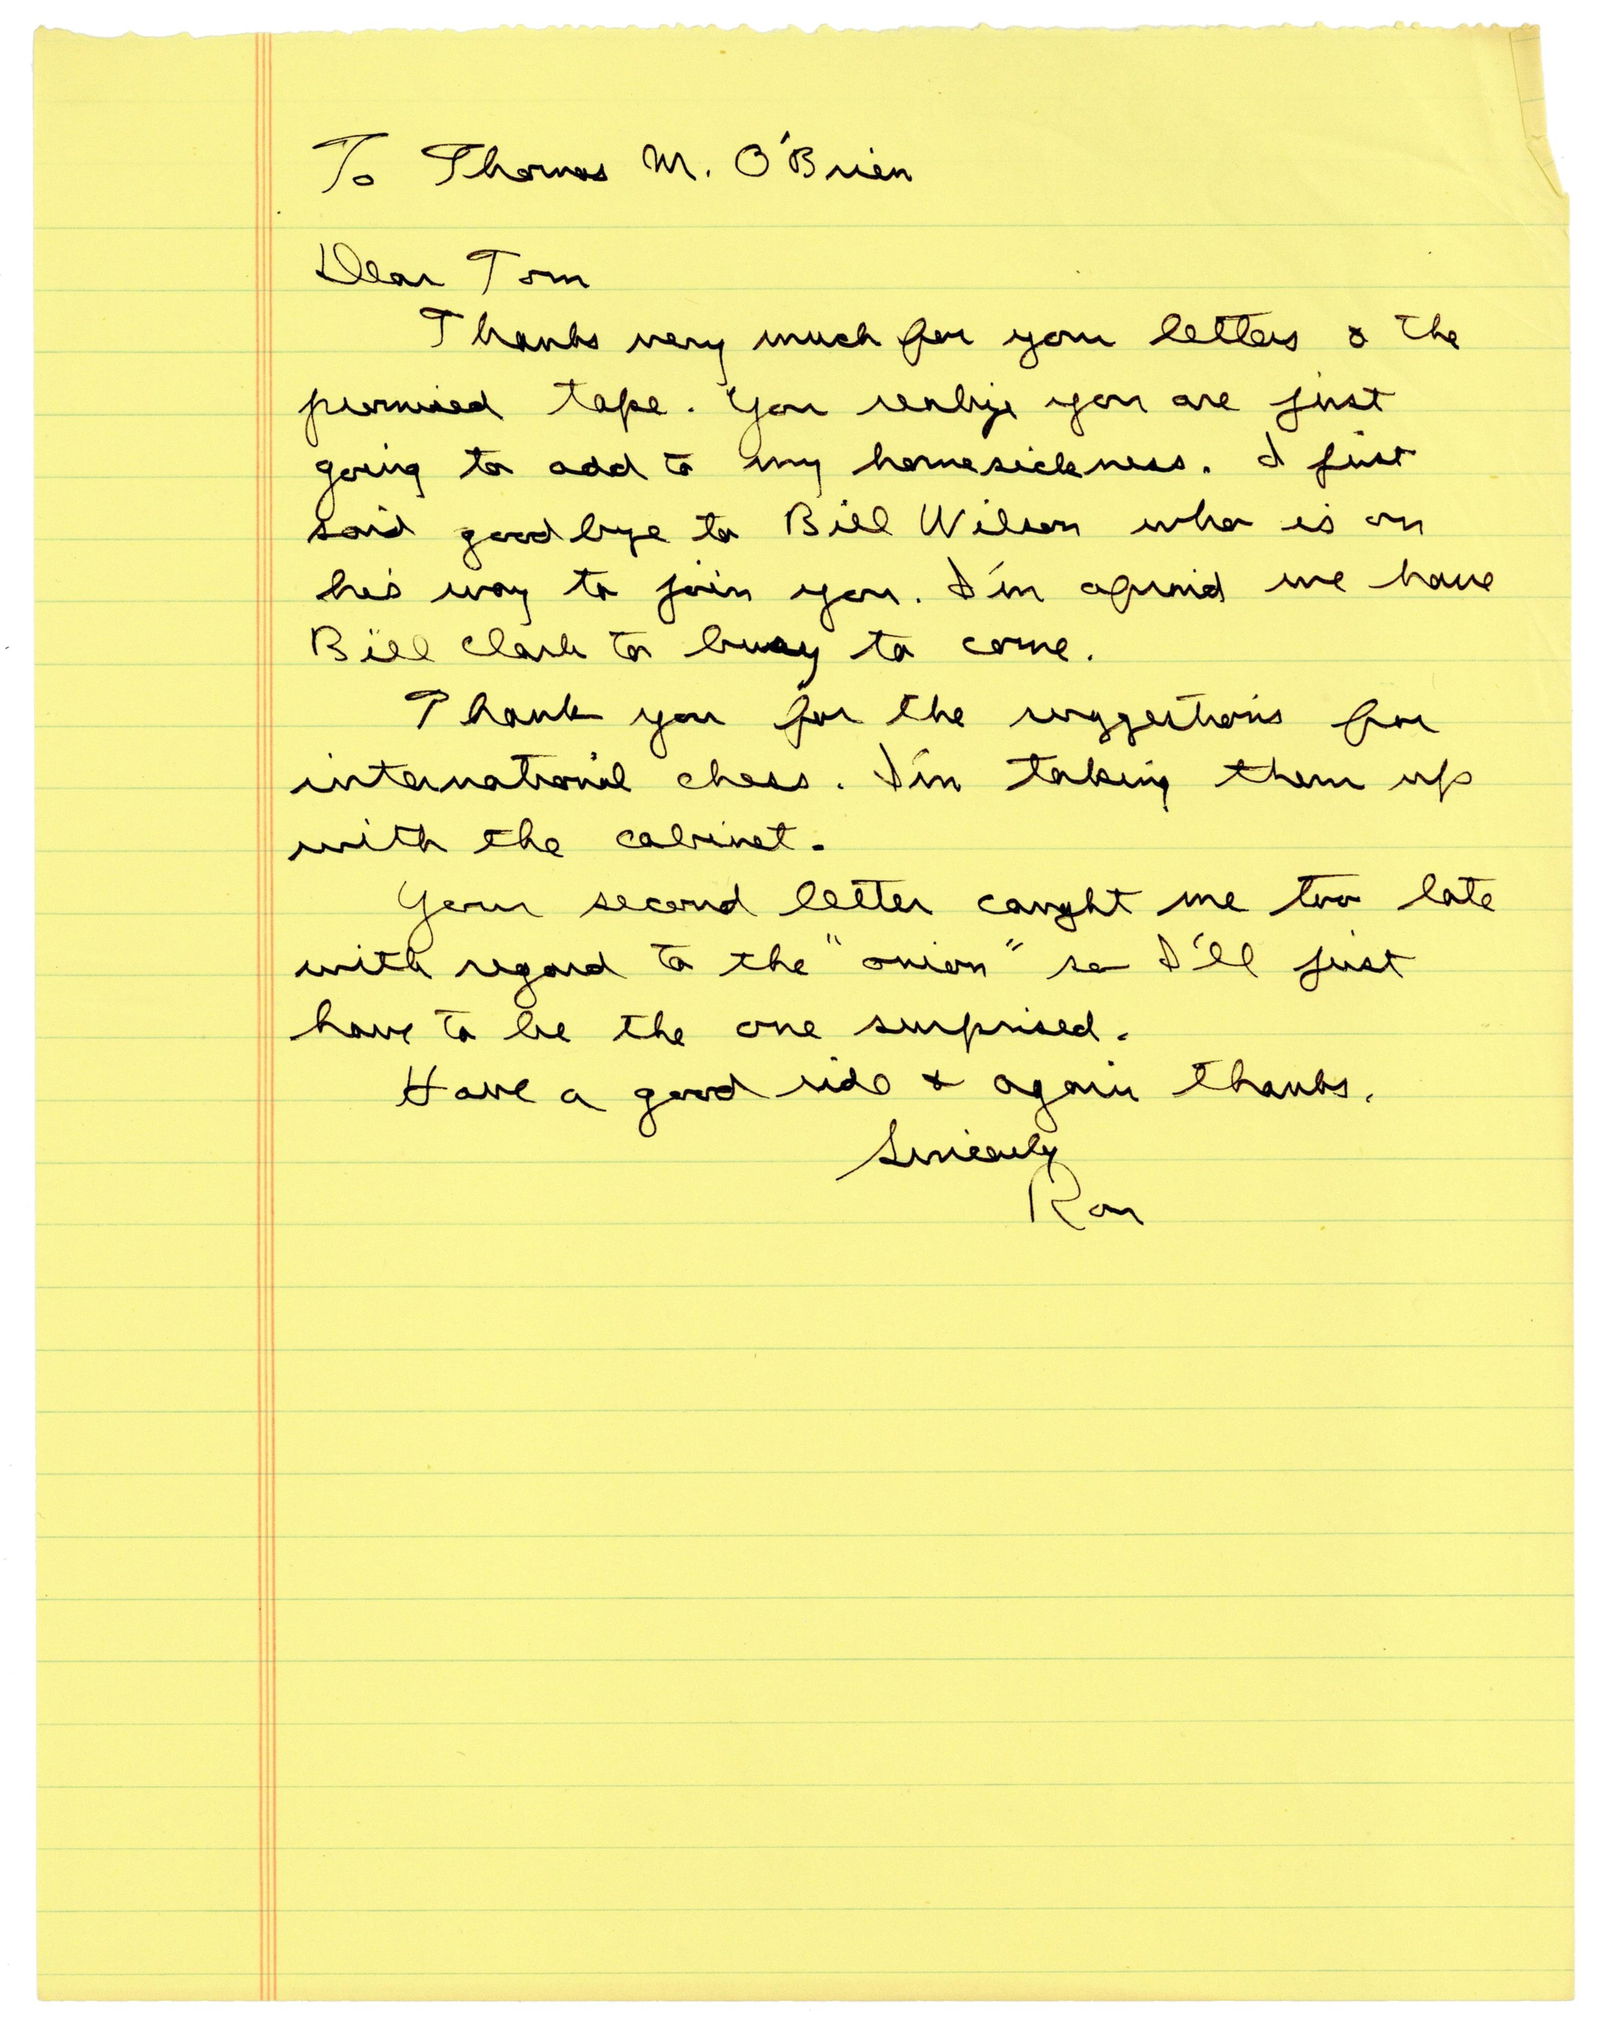 To Thomas M. O'Brien
Dear Tom
Thanks very much for your letters & the
promised tape. You realize you are just
going to add to my homesickness. I just
said goodbye to Bill Wilson who is on
his way to join you. I'm afraid we have
Bill Clark to busy to come.
Thank you for the suggestions for
international chess. I'm taking them up
with the cabinet.
Your second letter caught me too late
with regard to the "onion" so I'll just
have to be the one surprised.
Have a good ride & again thanks.
Sincerely
Ron